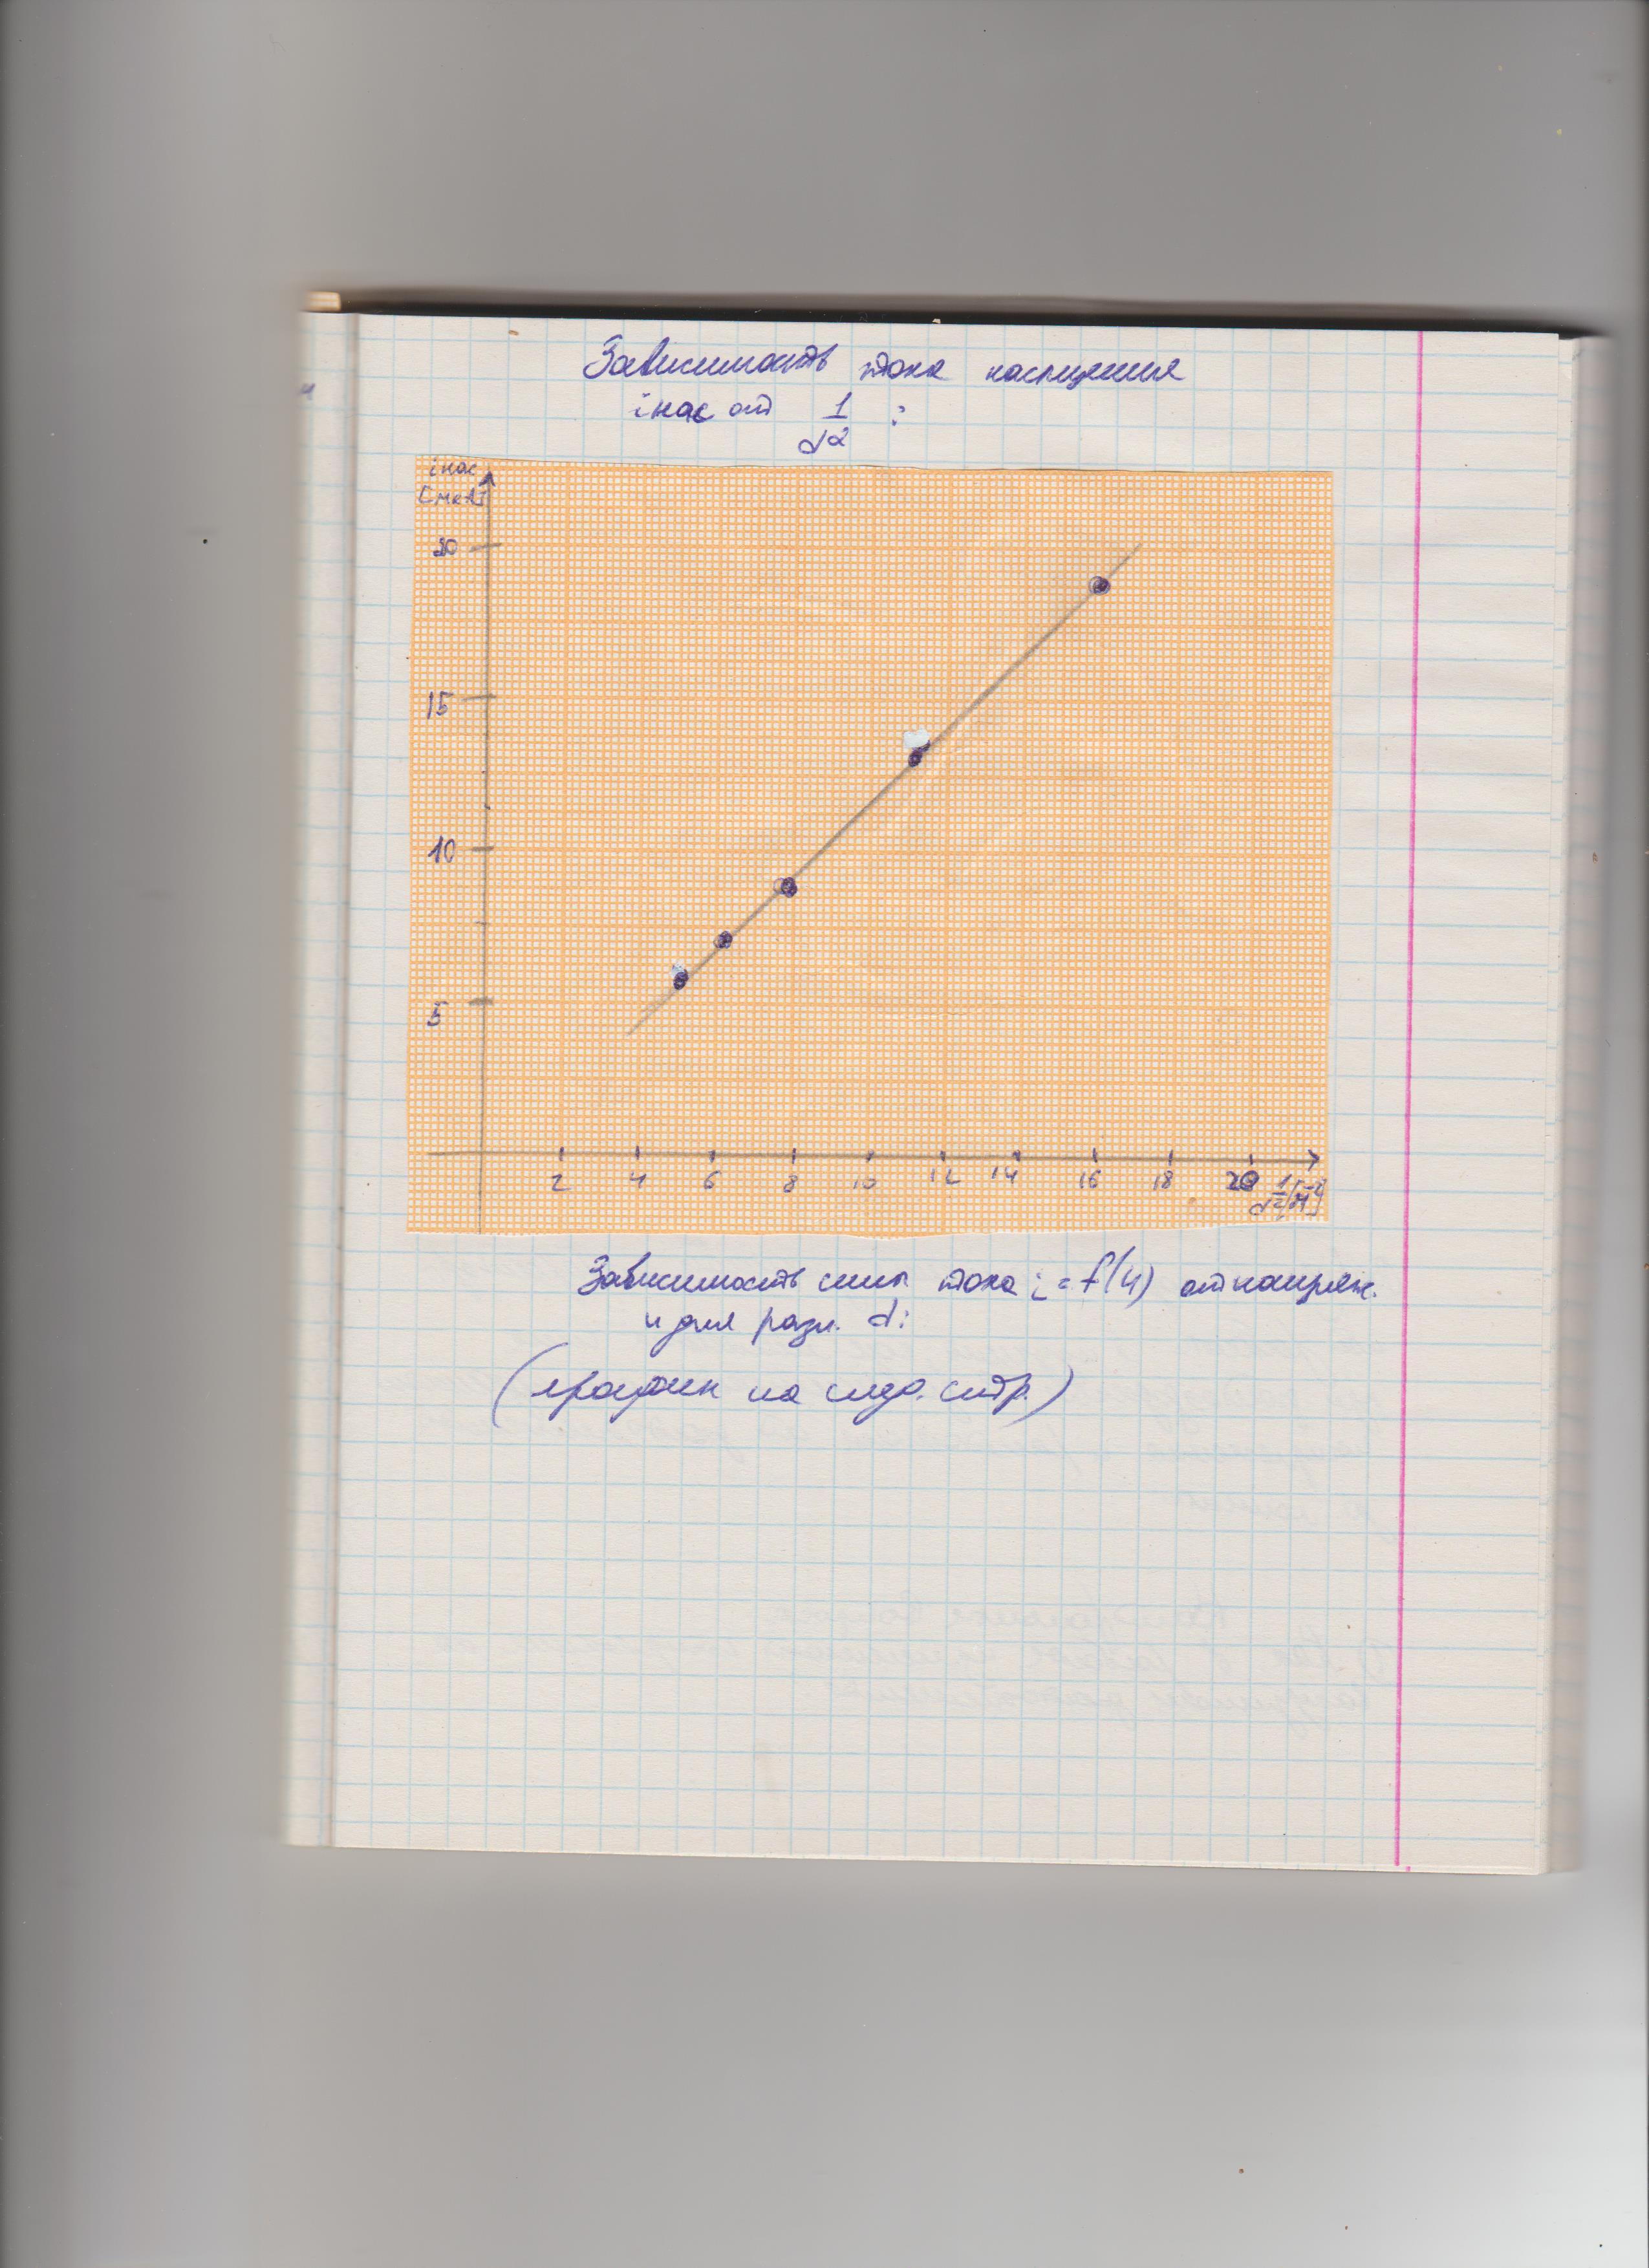 Зависимость тока насыщения
iнас от 1/d2 :
iнас
[мкА]
20
15
10
5
2 4 6 8 10 12 14 16 18 20 1/d2 [м-2]
Зависимость силы тока i = f(u) от напряж.
u для разл. d:
(график на след. стр.)